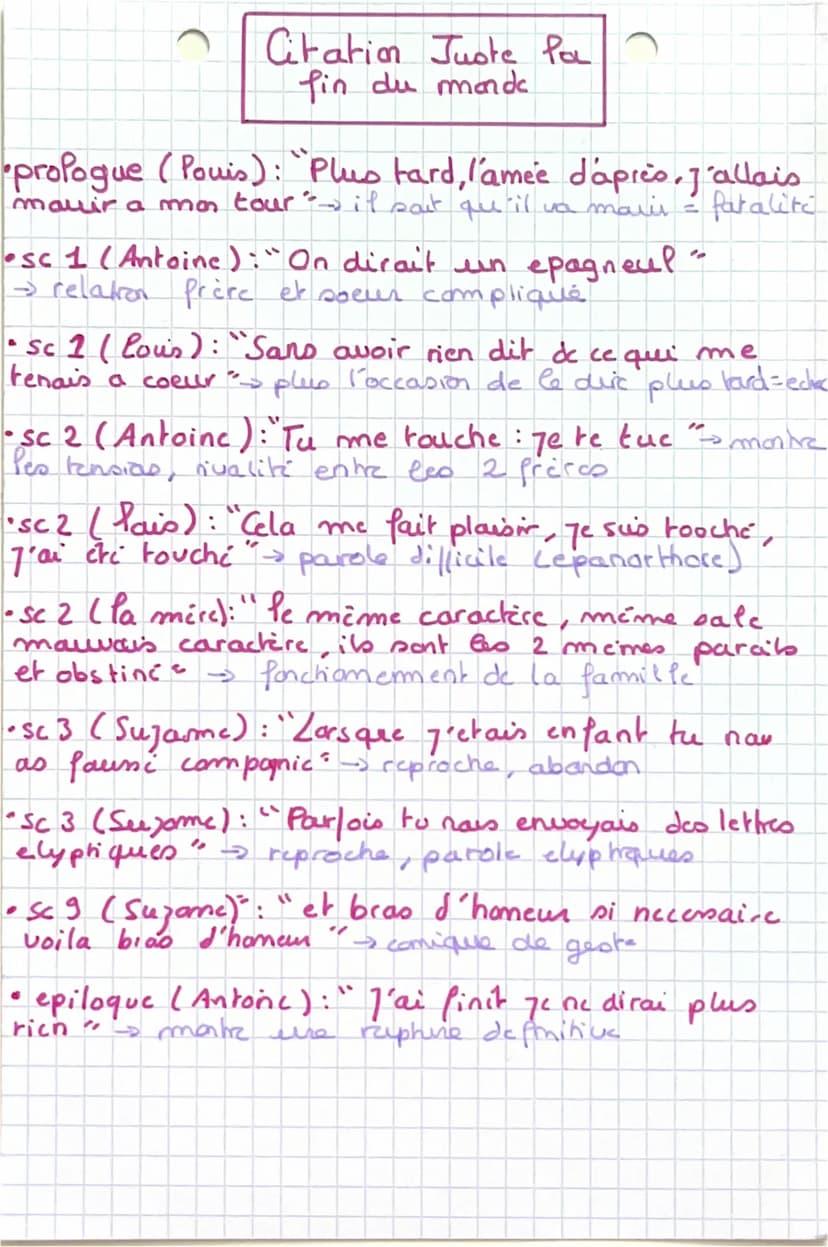 Citation Juste la
fin du monde
• prologue (Louis) : "Plus tard, l'année d'après, j'allais
mourir a mon tour" → il sait qu'il va mourir = fatalité
• sc 1 (Antoine) : "On dirait un epagneul"
→ relation frère et soeur compliqué
• sc 1 (Louis) : "Sans avoir rien dit de ce qui me
tenais a coeur" → plus l'occasion de le dire plus tard = echec
• sc 2 (Antoine) : "Tu me touche : je te tue" → montre
les tensions, rivalité entre les 2 frères
• sc 2 (Louis) : "Cela me fait plaisir, je suis touché,
j'ai été touché" → parole difficile (epanorthose)
• sc 2 (la mère) : "le même caractère, même sale
mauvais caractère, ils sont les 2 mêmes pareils
et obstiné" → fonctionnement de la famille
• sc 3 (Suzanne) : "Lorsque j'etais enfant tu nous
as faussé compagnie" → reproche, abandon
• sc 3 (Suzanne) : "Parfois tu nous envoyais des lettres
elyptiques" → reproche, parole elyptiques
• sc 9 (Suzanne) : "et bras d'honneur si necessaire
voila bras d'honneur" → comique de geste
• epilogue (Antoine) : "J'ai finit je ne dirai plus
rien" → montre une rupture definitive